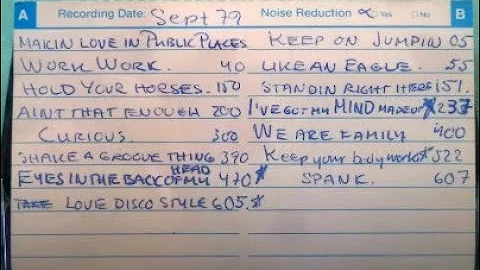 A Recording Date: Sept 79 Noise Reduction Yes No B
MAKIN LOVE IN PUBLIC PLACES KEEP ON JUMPIN 05
WORK WORK. 40 LIKE AN EAGLE. 55
HOLD YOUR HORSES. 150 STANDIN RIGHT HERE 151.
AINT THAT ENOUGH 200 I'VE GOT MY MIND MADE UP 237
CURIOUS. 300 WE ARE FAMILY 400
SHAKE A GROOVE THING 390 Keep your body workin 522
HEAD
EYES IN THE BACK OF MY 470 SPANK. 607
TAKE LOVE DISCO STYLE 605.